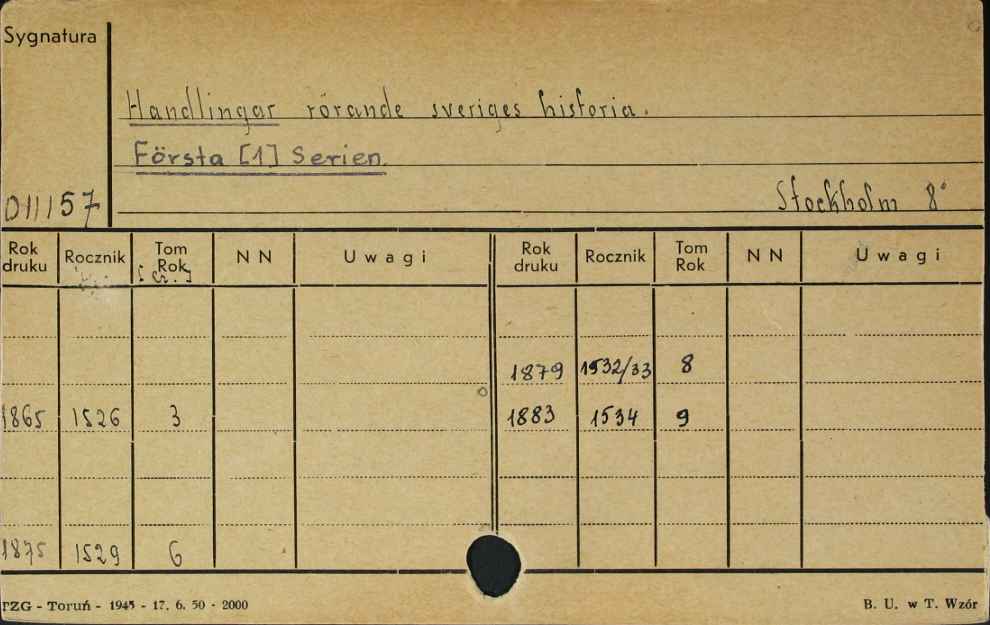 Sygnatura
Handlingar rörande sveriges historia.
Första [1] Serien.
011157
Stockholm 8°
Rok druku Rocznik Tom Rok N N Uwagi Rok druku Rocznik Tom Rok N N Uwagi
[cz.]
1879 1532/33 8
1865 1526 3 1883 1534 9
1875 1529 6
PZG - Toruń - 1945 - 17. 6. 50 - 2000 B. U. w T. Wzór